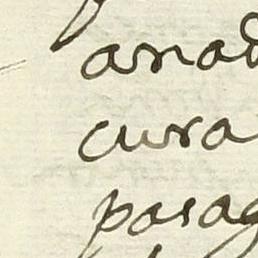 anad
cura
parag